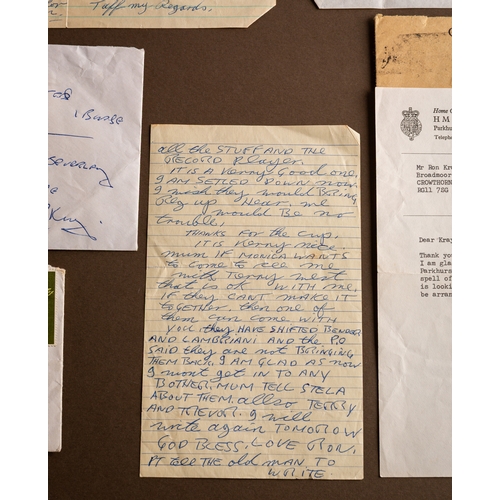 Taff my Regards.
all the STUFF AND THE
RECORD Player.
IT IS A Verry Good one.
I AM SETLED DOWN NOW.
I wish they would BRING
Reg up Near me
I would Be no
trouble,
THANKS FOR the CUP.
IT IS Verry Nice
MUM IF MONICA WANTS
to come to see me
with
that is ok WITH me,
IF they CANT MAKE IT
together then one of
them can come WITH
YOU they HAVE SHIFTED BENDER
AND LAMBRIANI AND the P.O
SAID they are NOT BERINGING
THEM BACK. I AM GLAD AS NOW
I wont get IN TO ANY
BOTHER. MUM TELL STELA
ABOUT THEM. allso TERRY
AND TREVOR. I will
write again TOMORROW
GOD BLESS. LOVE RON.
PT tell the old man TO
WRITE.
Home O
H M
Parkhurs
Telepho
Mr Ron Kr
Broadmoor
CROWTHORN
RG11 7SG
Dear Kray
Thank you
I am gla
Parkhurs
spell of
is lookin
be arran